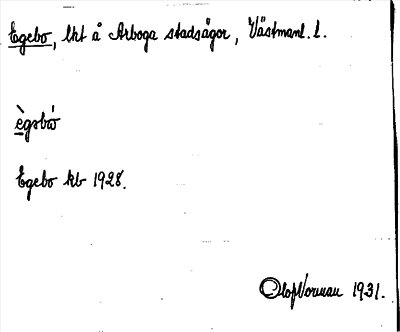 Egebo, lht å Arboga stadsägor, Västmanl. l.
ègsbó
Egebo kb 1928.
Olof Vorman 1931.